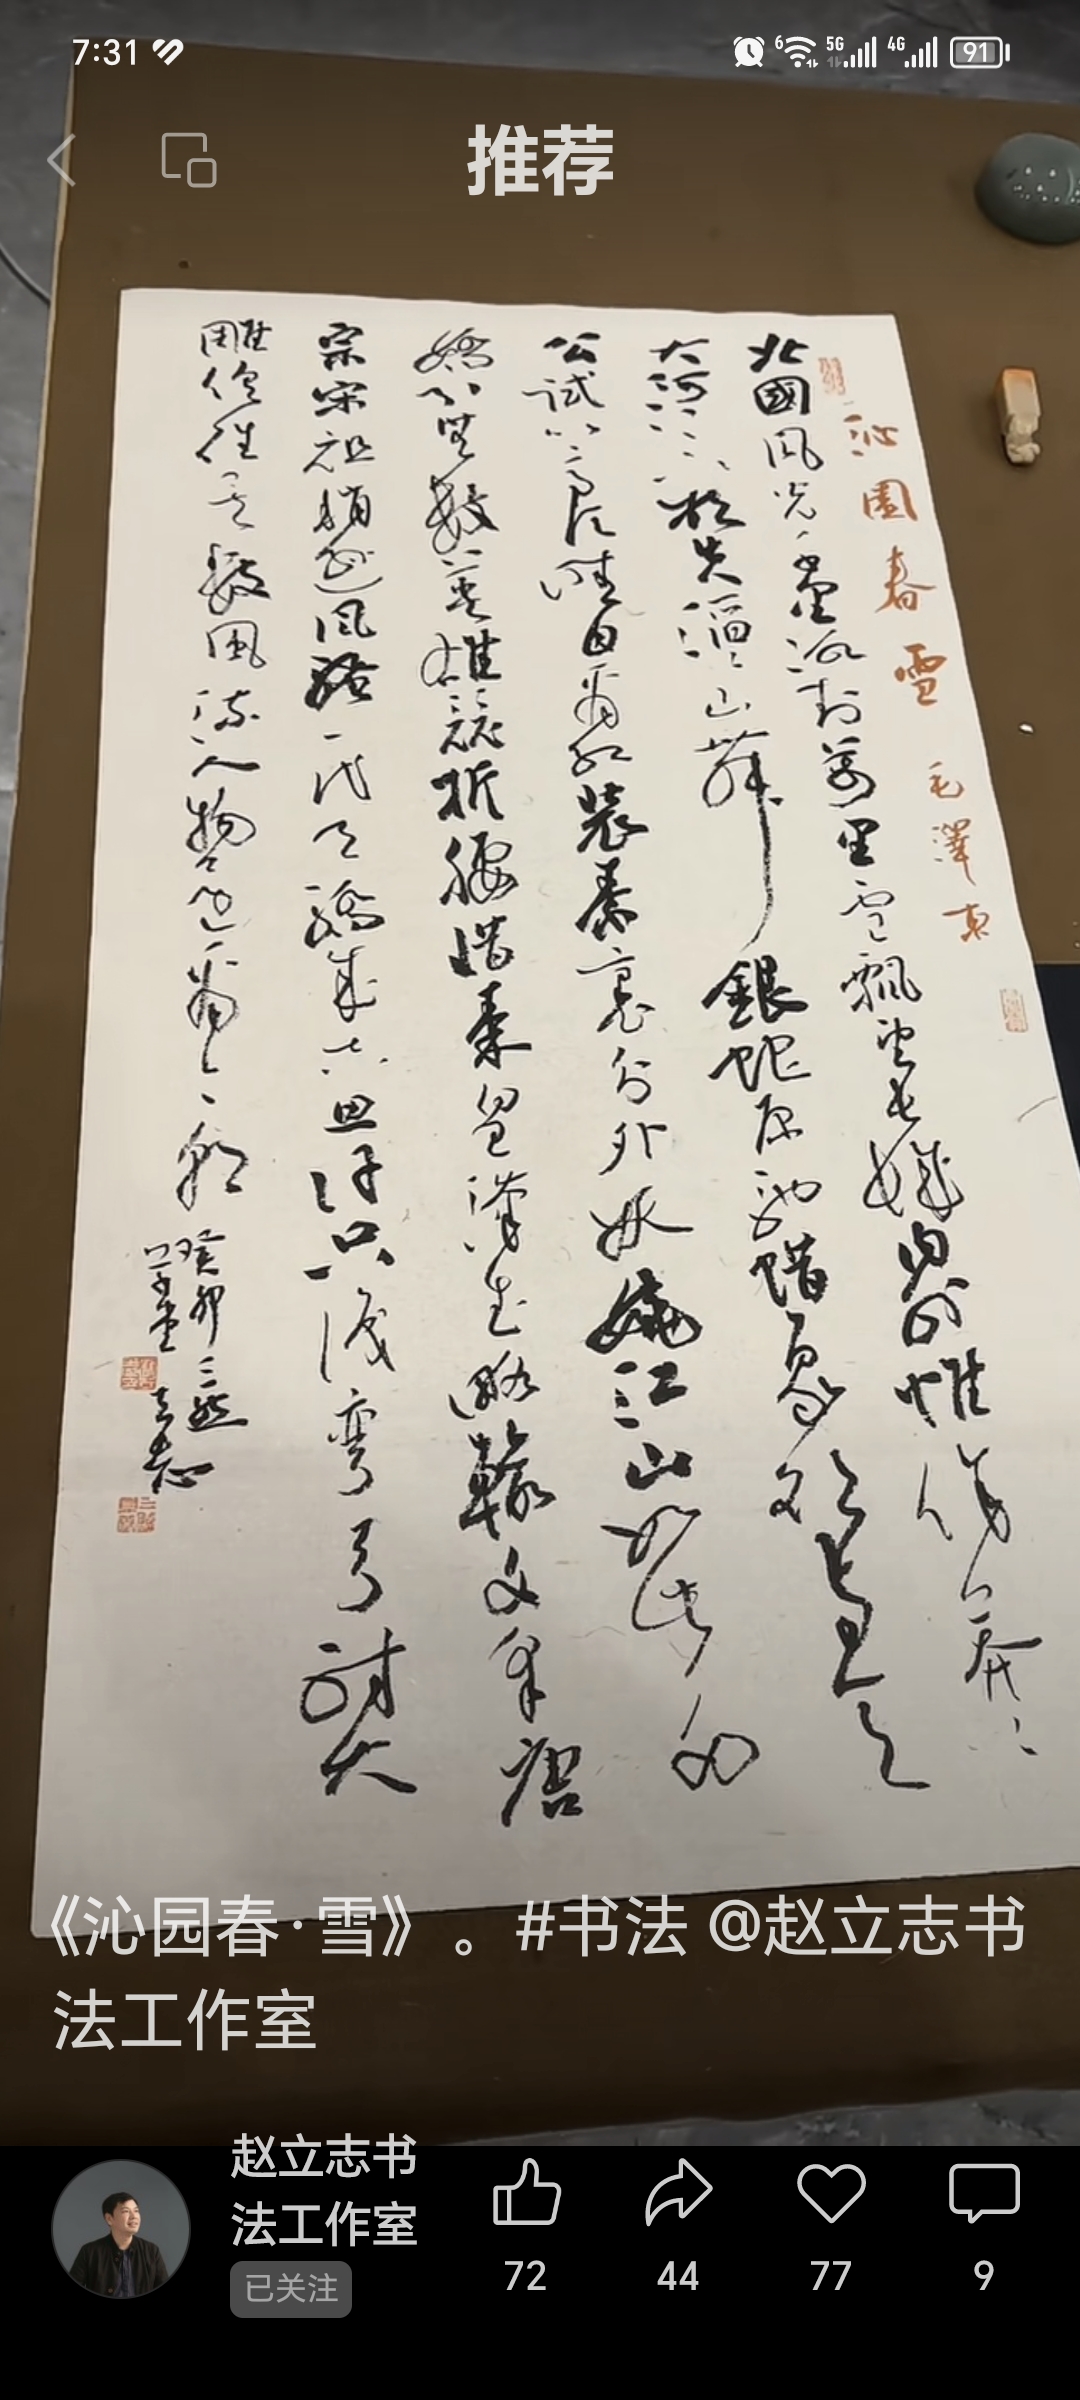 7:31
6 5G 4G 91
推荐
沁園春雪 毛澤東
北國風光千里冰封萬里雪飄望長城內外惟餘莽莽
大河上下頓失滔滔山舞銀蛇原馳蜡象欲與天
公試比高須晴日看紅裝素裹分外妖嬈江山如此多
嬌引無數英雄競折腰惜秦皇漢武略輸文采唐
宗宋祖稍遜風騷一代天驕成吉思汗只識彎弓射大
雕俱往矣數風流人物還看今朝
癸卯三然
草堂立志
《沁园春·雪》。#书法 @赵立志书
法工作室
赵立志书
法工作室
已关注
72 44 77 9